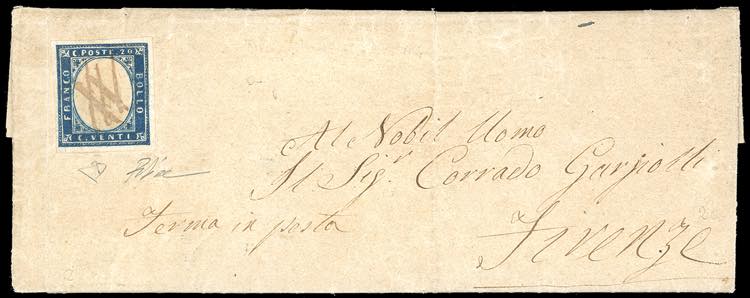 C. POSTE 20
FRANCO
BOLLO
C. VENTI
Al Nobil Uomo
Il Sigʳ Corrado Gargiolli
Ferma in posta
Firenze